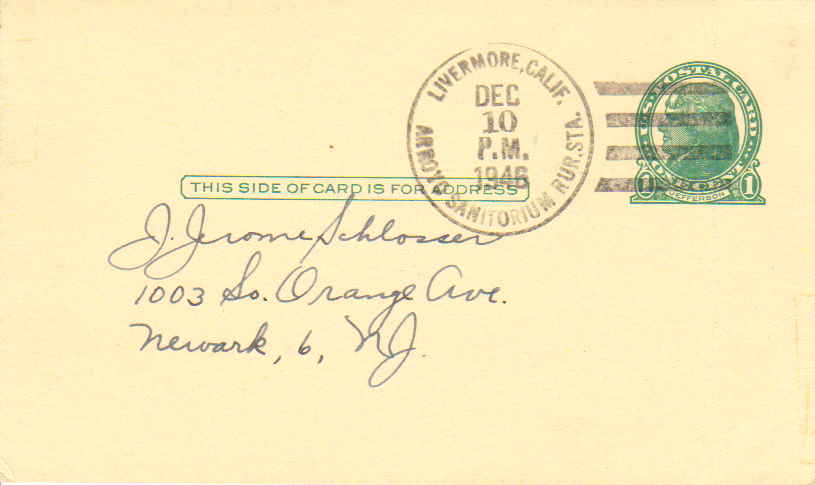 LIVERMORE, CALIF.
DEC
10
P.M.
1946
ARROYO SANITORIUM RUR. STA.
U.S. POSTAL CARD
ONE CENT
1 1
JEFFERSON
THIS SIDE OF CARD IS FOR ADDRESS
J. Jerome Schlosser
1003 So. Orange Ave.
Newark, 6, NJ.